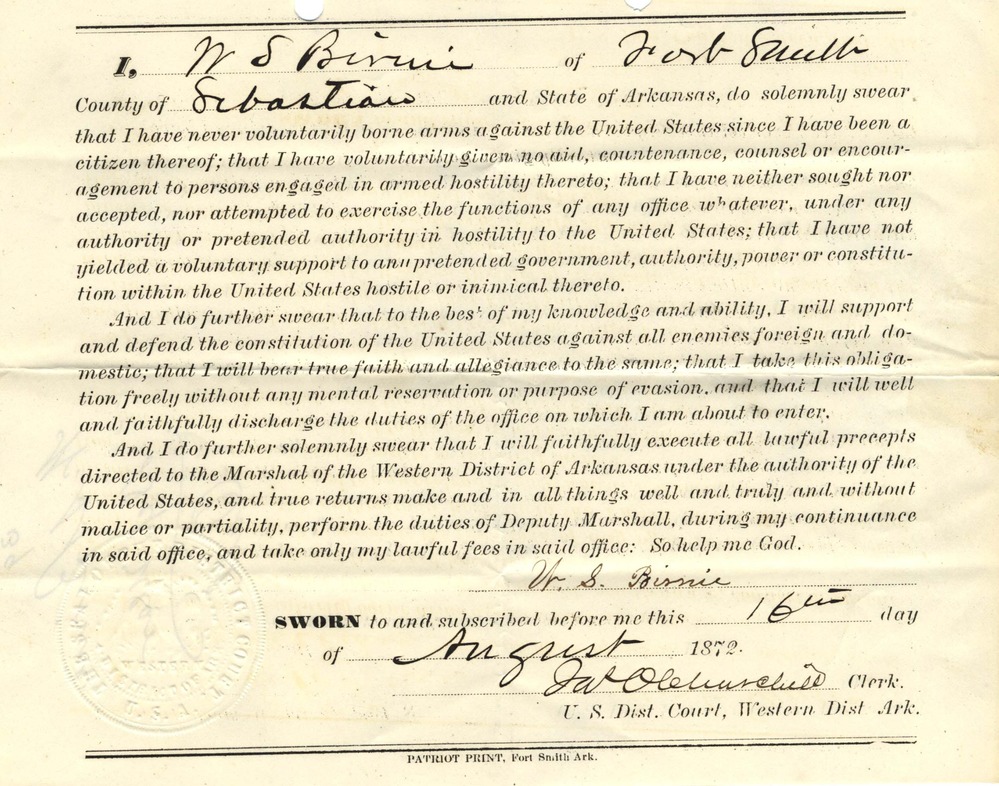 I, W S Birnie of Fort Smith
County of Sebastian and State of Arkansas, do solemnly swear
that I have never voluntarily borne arms against the United States since I have been a
citizen thereof; that I have voluntarily given no aid, countenance, counsel or encour-
agement to persons engaged in armed hostility thereto; that I have neither sought nor
accepted, nor attempted to exercise the functions of any office whatever, under any
authority or pretended authority in hostility to the United States; that I have not
yielded a voluntary support to any pretended government, authority, power or constitu-
tion within the United States hostile or inimical thereto.
And I do further swear that to the best of my knowledge and ability, I will support
and defend the constitution of the United States against all enemies foreign and do-
mestic; that I will bear true faith and allegiance to the same; that I take this obliga-
tion freely without any mental reservation or purpose of evasion, and that I will well
and faithfully discharge the duties of the office on which I am about to enter.
And I do further solemnly swear that I will faithfully execute all lawful precepts
directed to the Marshal of the Western District of Arkansas under the authority of the
United States, and true returns make and in all things well and truly and without
malice or partiality, perform the duties of Deputy Marshall, during my continuance
in said office, and take only my lawful fees in said office: So help me God.
W. S. Birnie
SWORN to and subscribed before me this 16th day
of August 1872.
Jas O Churchill Clerk.
U. S. Dist. Court, Western Dist Ark.
PATRIOT PRINT, Fort Smith Ark.